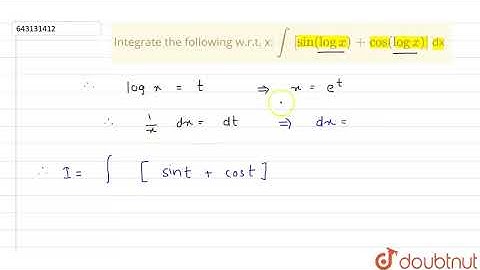 643131412
Integrate the following w.r.t. x: ∫ [sin(log x) + cos(log x)] dx
∴ log x = t ⇒ x = e^t
∴ 1/x dx = dt ⇒ dx =
∴ I = ∫ [ sint + cost ]
doubtnut